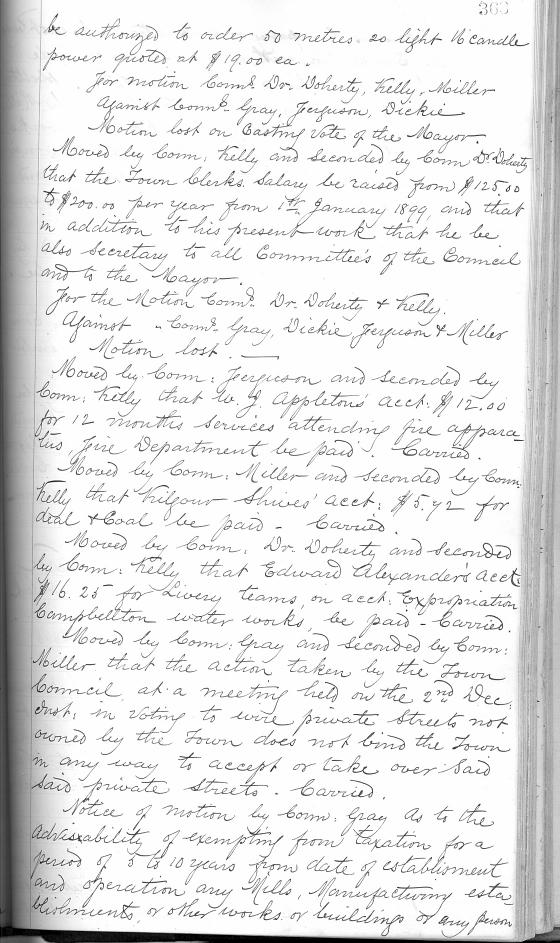 363
be authorized to order 50 metres 20 light 16 candle
power quoted at $19.00 ea.
For motion Conns. Dr. Doherty, Kelly, Miller
Against Conns. Gray, Ferguson, Dickie
Motion lost on Casting vote of the Mayor.
Moved by Conn: Kelly and seconded by Conn Dr. Doherty
that the Town Clerks. Salary be raised from $125.00
to $200.00 per year from 1st January 1899, and that
in addition to his present work that he be
also Secretary to all Committee's of the Council
and to the Mayor.
For the Motion Conns. Dr. Doherty & Kelly.
Against " Conns. Gray, Dickie, Ferguson & Miller
Motion lost. —
Moved by Conn: Ferguson and seconded by
Conn: Kelly that W. J. Appleton's acct: $12.00
for 12 months services attending fire appara-
tus Fire Department be paid. Carried.
Moved by Conn: Miller and seconded by Conn:
Kelly that Kilgour Shives' acct: $5.72 for
deal & Coal be paid - Carried.
Moved by Conn: Dr. Doherty and seconded
by Conn: Kelly that Edward Alexander's acct:
$16.25 for Livery teams, on acct: Expropriation
Campbellton water works, be paid - Carried.
Moved by Conn: Gray and seconded by Conn:
Miller that the action taken by the Town
Council at a meeting held on the 2nd Dec:
inst: in voting to wire private Streets not
owned by the Town does not bind the Town
in any way to accept or take over said
said private streets. Carried.
Notice of motion by Conn: Gray As to the
advisability of exempting from taxation for a
period of 5 to 10 years from date of establisment
and operation any Mills, Manufacturing esta-
blishments, or other works or buildings or any person